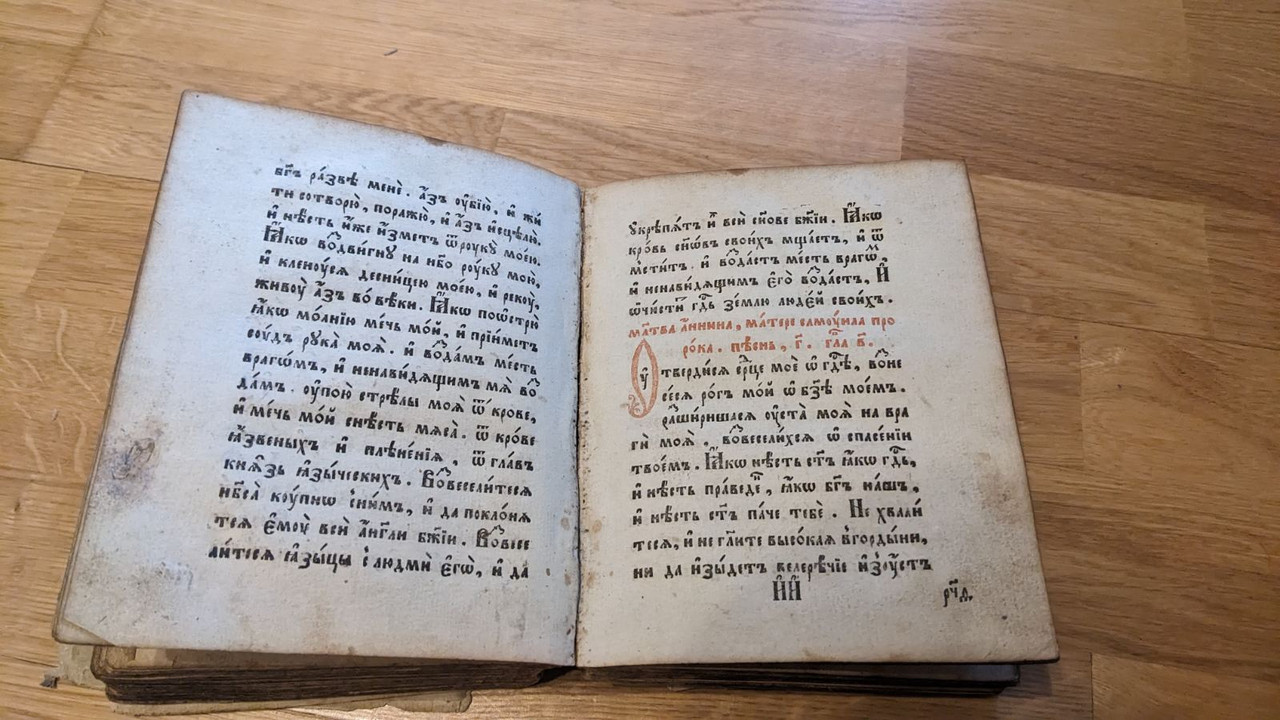 бг҃ъ ра́звѣ менѐ. а҆́зъ ᲂу҆бїю̀, и҆ жи́
ти сотворю̀, поражю̀, и҆ а҆́зъ и҆сцѣлю̀.
и҆ нѣ́сть и҆́же и҆́змет ѿрᲂукꙋ̀ моє́ю.
Ꙗ҆́кѡ во́дви́гнꙋ на нб҃о рᲂу́кꙋ мою̀,
и҆ кленᲂу́ся десни́цею мое́ю, и҆ рекᲂу̀,
живᲂу̀ а҆́зъ во́ вѣ́ки. Ꙗ҆́кѡ поѡ҆стрю̀
ꙗ҆́кѡ мо́лнїю ме́чь мо́й, и҆ прїи́метъ
сᲂу́дъ рꙋка̀ моѧ̀. и҆ во́да́мъ ме́сть
врагѡ́мъ, и҆ ненави́дящимъ мѧ̀ во́
да́мъ. ᲂу҆пою̀ стрѣ́лы моѧ̀ ѿ кро́ве,
и҆ ме́чь мо́й снѣ́сть мяса̀. ѿ кро́ве
ꙗ҆́звеныхъ и҆ плѣне́нїя, ѿ гла́въ
кня́зь ꙗ҆зы́ческихъ. Во́весели́теся
нб҃са̀ кᲂу́пнѡ с̾ни́мъ, и҆ да покло́ня
тся є҆мᲂу̀ всѝ а҆́нг҃ли бж҃їи. Во́весе
ли́теся ꙗ҆зы́цы с̾ людмѝ є҆гѡ̀, и҆ да
ᲂу҆крѣпя́тъ и҆̀ всѝ сн҃ове бж҃їи. Ꙗ҆́кѡ
кро́вь сн҃ѡвъ свои́хъ мща́етъ, и҆ ѿ
мсти́тъ. и҆ во́да́стъ ме́сть врагѡ́м,
и҆ ненави́дящимъ є҆го̀ во́да́стъ, и҆
ѡ҆чи́стит гд҃ь зе́млю люде́й свои́хъ.
мл҃тва а҆́ннина, ма́тере самᲂу́ила про
ро́ка. пѣ́снь, г҃. гла́ в҃.
Оу҆твердѝся ср҃це моѐ ѡ҆ гд҃ѣ, во́не
се́ся ро́гъ мо́й ѡ҆ бз҃ѣ мое́мъ.
ра́шири́шася ᲂу҆ста̀ моѧ̀ на вра
гѝ моѧ̀, во́весели́хся ѡ҆ спасе́нїи
твое́мъ. Ꙗ҆́кѡ нѣ́сть ст҃ъ ꙗ҆́кѡ гд҃ь,
и҆ нѣ́сть пра́веде, ꙗ҆́кѡ бг҃ъ на́шъ,
и҆ нѣ́сть ст҃ъ па́че тебѐ. Не хвали́
теся, и҆ не гл҃ите высо́кая в̾горды́ни,
ни да и҆зы́детъ велерѣ́чїе и҆зᲂу́стъ